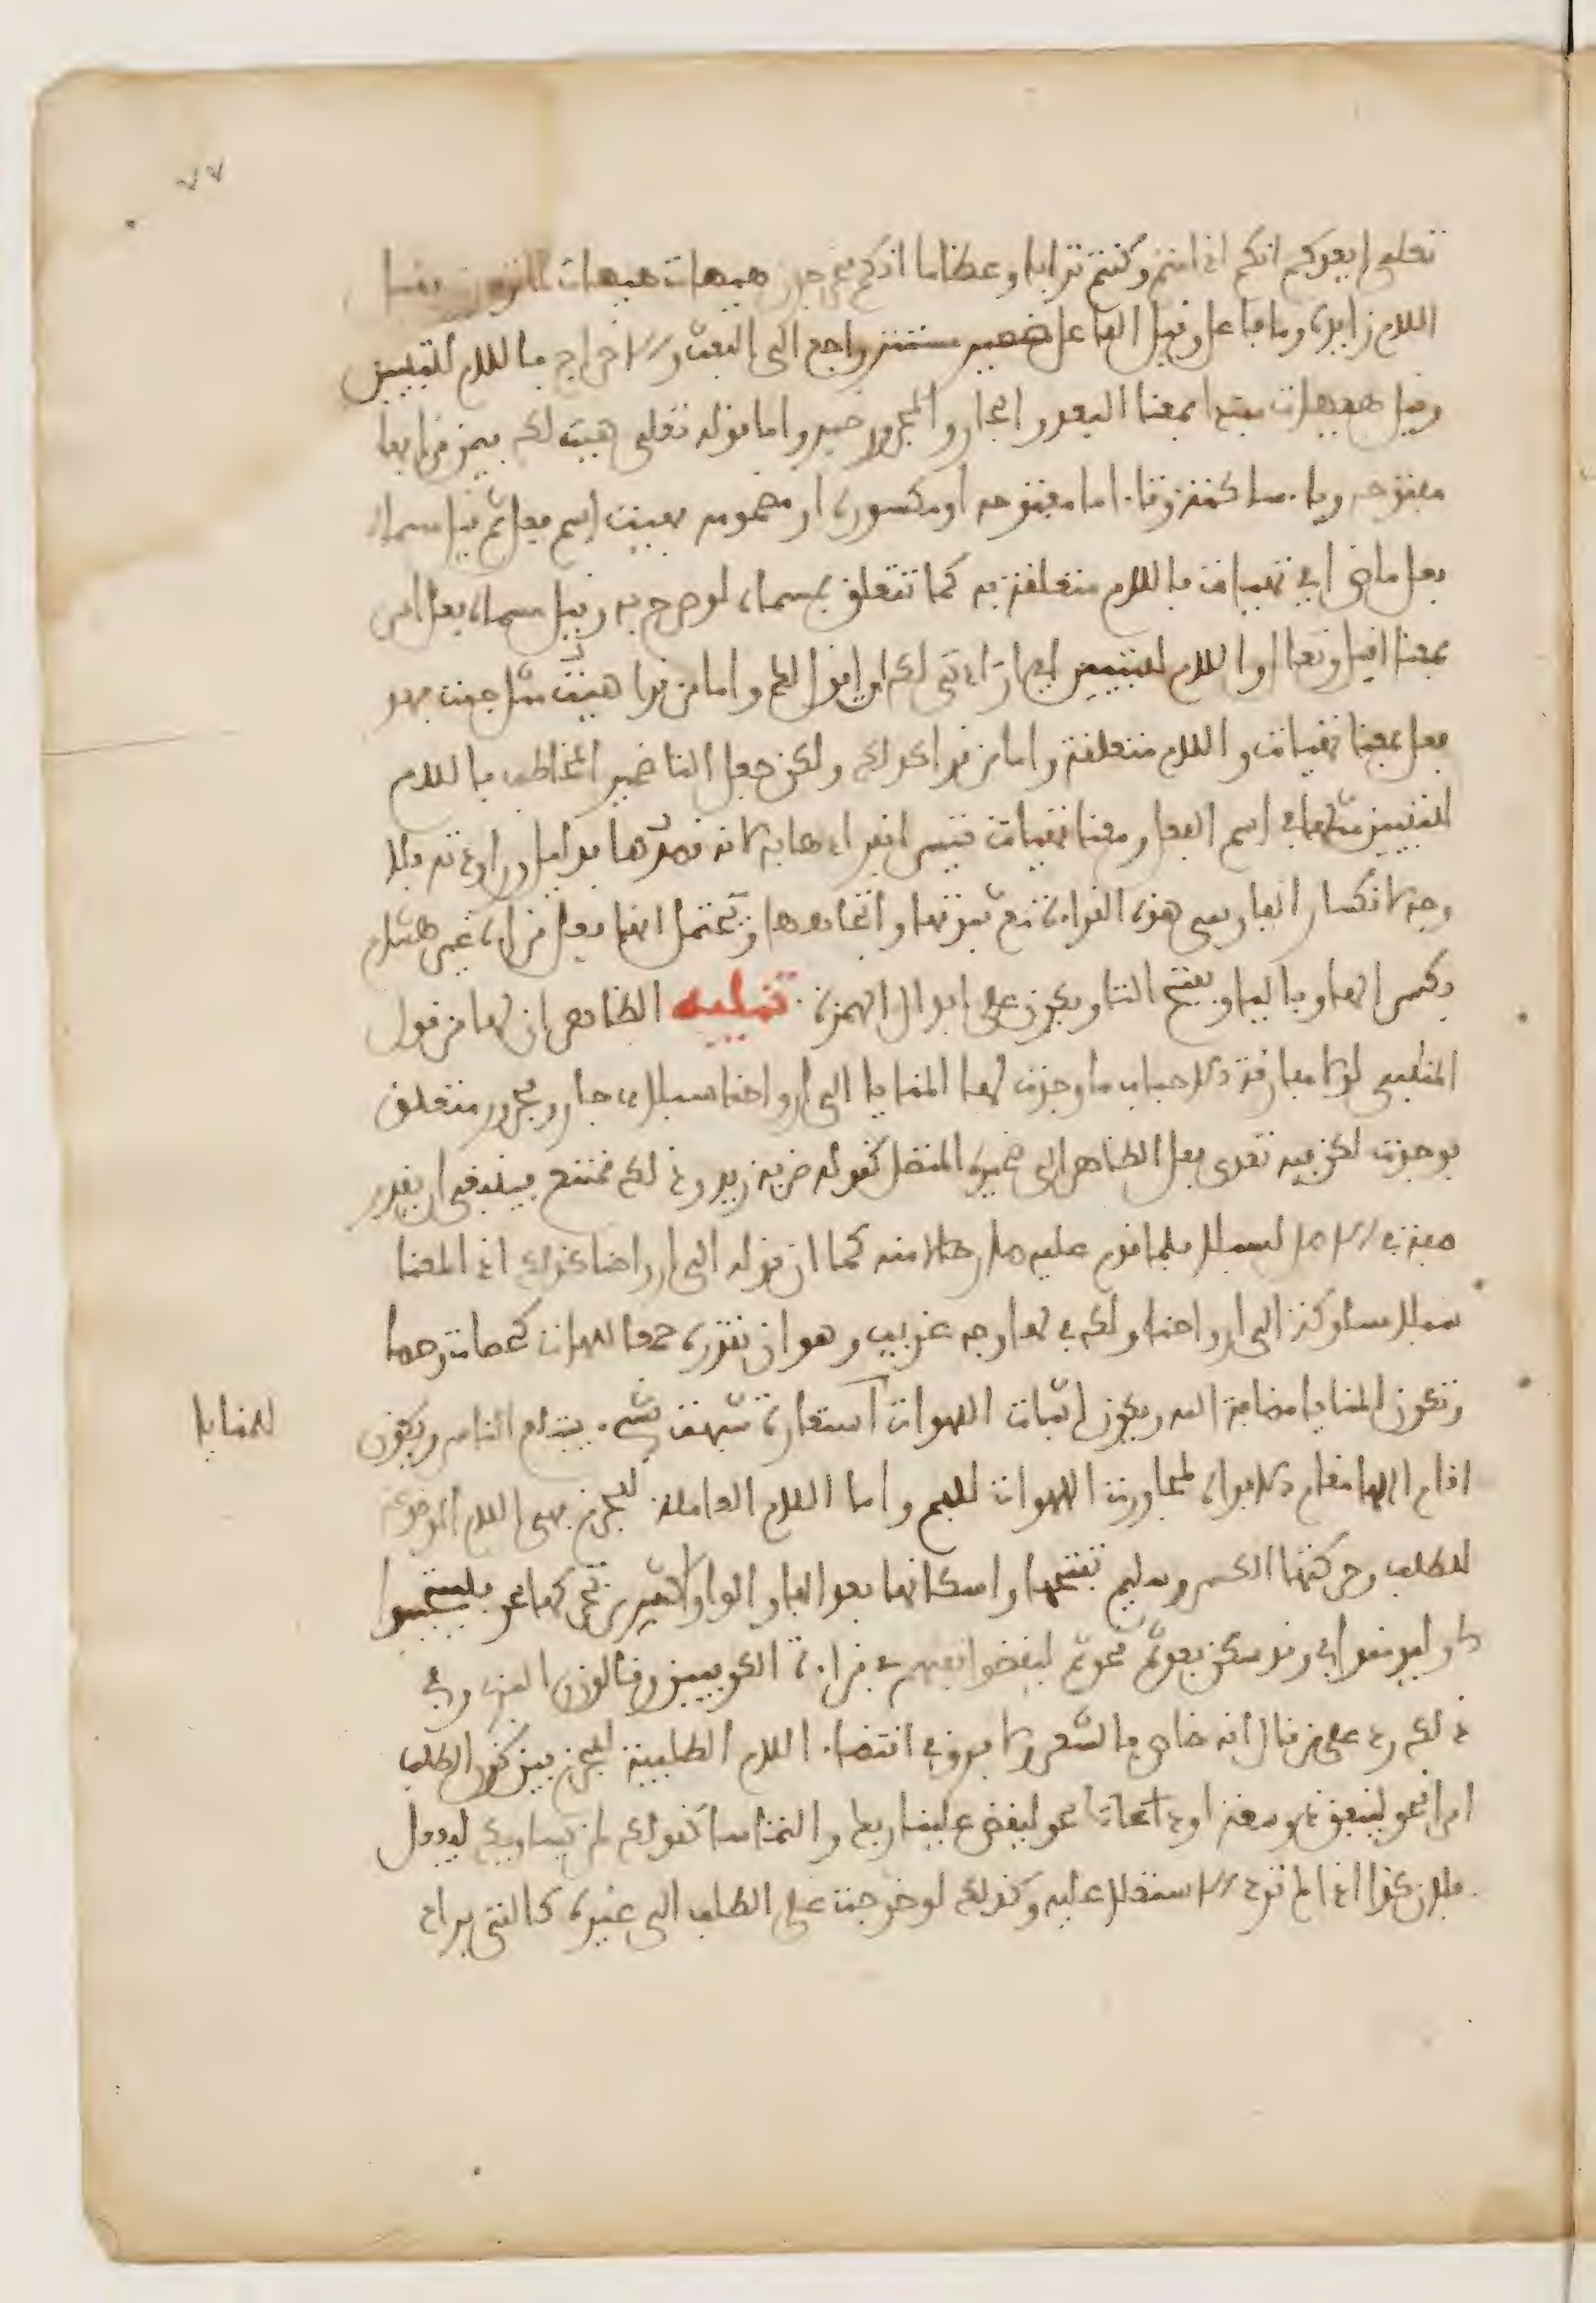 ٧٧
تعلى ايعدكم انكم اذا متم وكنتم ترابا وعظاما انكم مخرجون هيهات هيهات لما توعدون
اللام زايدة وما فاعل وقيل الفاعل ضمير مستتر راجع الى البعث والاخراج فاللام للتبيين
وقيل هيهات مبتدا بمعنا البعد والجار والمجرور خبر واما قوله تعلى هيت لك فيمن قرا بهاء
مفتوحه وياء ساكنة وتاء اما مفتوحه او مكسورة او مضمومه فهيت اسم فعل ثم قيل مسماه
فعل ماض اي تهيات فاللام متعلقة به كما تتعلق بمسماه لو صرح به وقيل مسماه فعل امر
بمعنا اقبل وتعال واللام للتبيين اي ارادتي لك او اقول لك واما من قرا هيت مثل جيت فهو
فعل بمعنا تهيات واللام متعلقة واما من قرا كذلك ولكن جعل التا ضمير المخاطب فاللام
للتبيين مثلها في اسم الفعل ومعنا تهيات تيسر انفرادها به لانه قصدها بدليل وراودته فلا
وجه لانكار الفارسي هذه القراءة مع ثبوتها واتجاهها ويحتمل انها فعل قراءة هشام
بكسر الهاء وبالياء وبفتح التا ويكون على ابدال الهمزة تنبيه الظاهر ان لها من قول
المتنبي لولا مفارقة الاحباب ما وجدت لها المنايا الى ارواحنا سبلا جار ومجرور متعلق
بوجدت لكن فيه تعدي فعل الظاهر الى ضميره المتصل كقولك ضربه زيد وذلك ممتنع فينبغي ان يقدر
صفة في الاصل لسبلا فلما قدم عليه صار حالا منه كما ان قوله الى ارواحنا كذلك اذ المعنا
سبلا مسلوكة الى ارواحنا ولك في لها وجه غريب وهو ان تقدره جمعا للهات كحصات وحصا
وتكون المنايا مضافة اليه ويكون اثبات اللهوات استعارة شبهت بشيء يبتلع الناس ويكون
للمنايا
اقام اللها مقام الافواه لمجاورت اللهوات للفم واما اللام العاملة للجزم فهي اللام الموضوعة
للطلب وحركتها الكسر وسليم تفتحها واسكانها بعد الفاء والواو اكثر من تحريكها نحو فليستجيبوا
لي وليومنوا بي وقد تسكن بعد ثم نحو ثم ليقضوا تفثهم في قراءة الكوفيين وقالون والبزي وفي
ذلك رد على من قال انه خاص بالشعر ولا فرق في اقتضاء اللام الطلبية للجزم بين كون الطلب
امرا نحو لينفق ذو سعة او دعاء نحو ليقض علينا ربك والتماسا كقولك لمن يساويك ليفعل
فلان كذا اذا لم ترد الاستعلا عليه وكذلك لو خرجت على الطلب الى غيره كالتي يراد